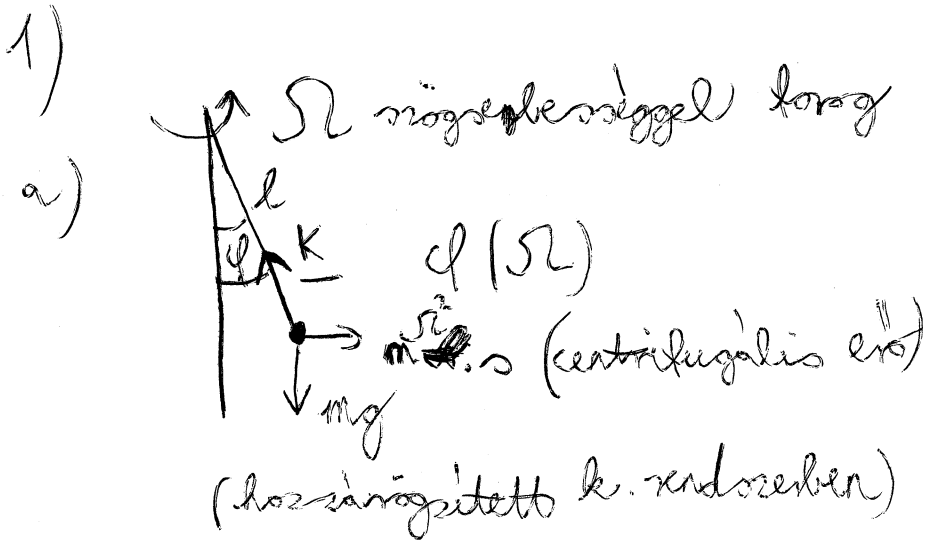 1)
Ω szögsebességgel forog
a)
l
φ K φ(Ω)
mΩ².s (centrifugális erő)
mg
(hozzárögzített k. rendszerben)